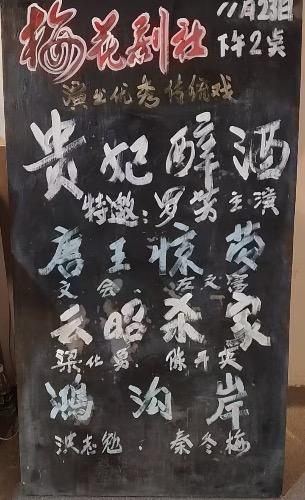 梅花剧社
11月23日
下午2点
演出优秀传统戏
贵妃醉酒
特邀:罗笑 主演
唐王惊梦
文会、左文
云昭杀家
梁化男、陈开英
鸿沟岸
洪志勉、秦冬梅